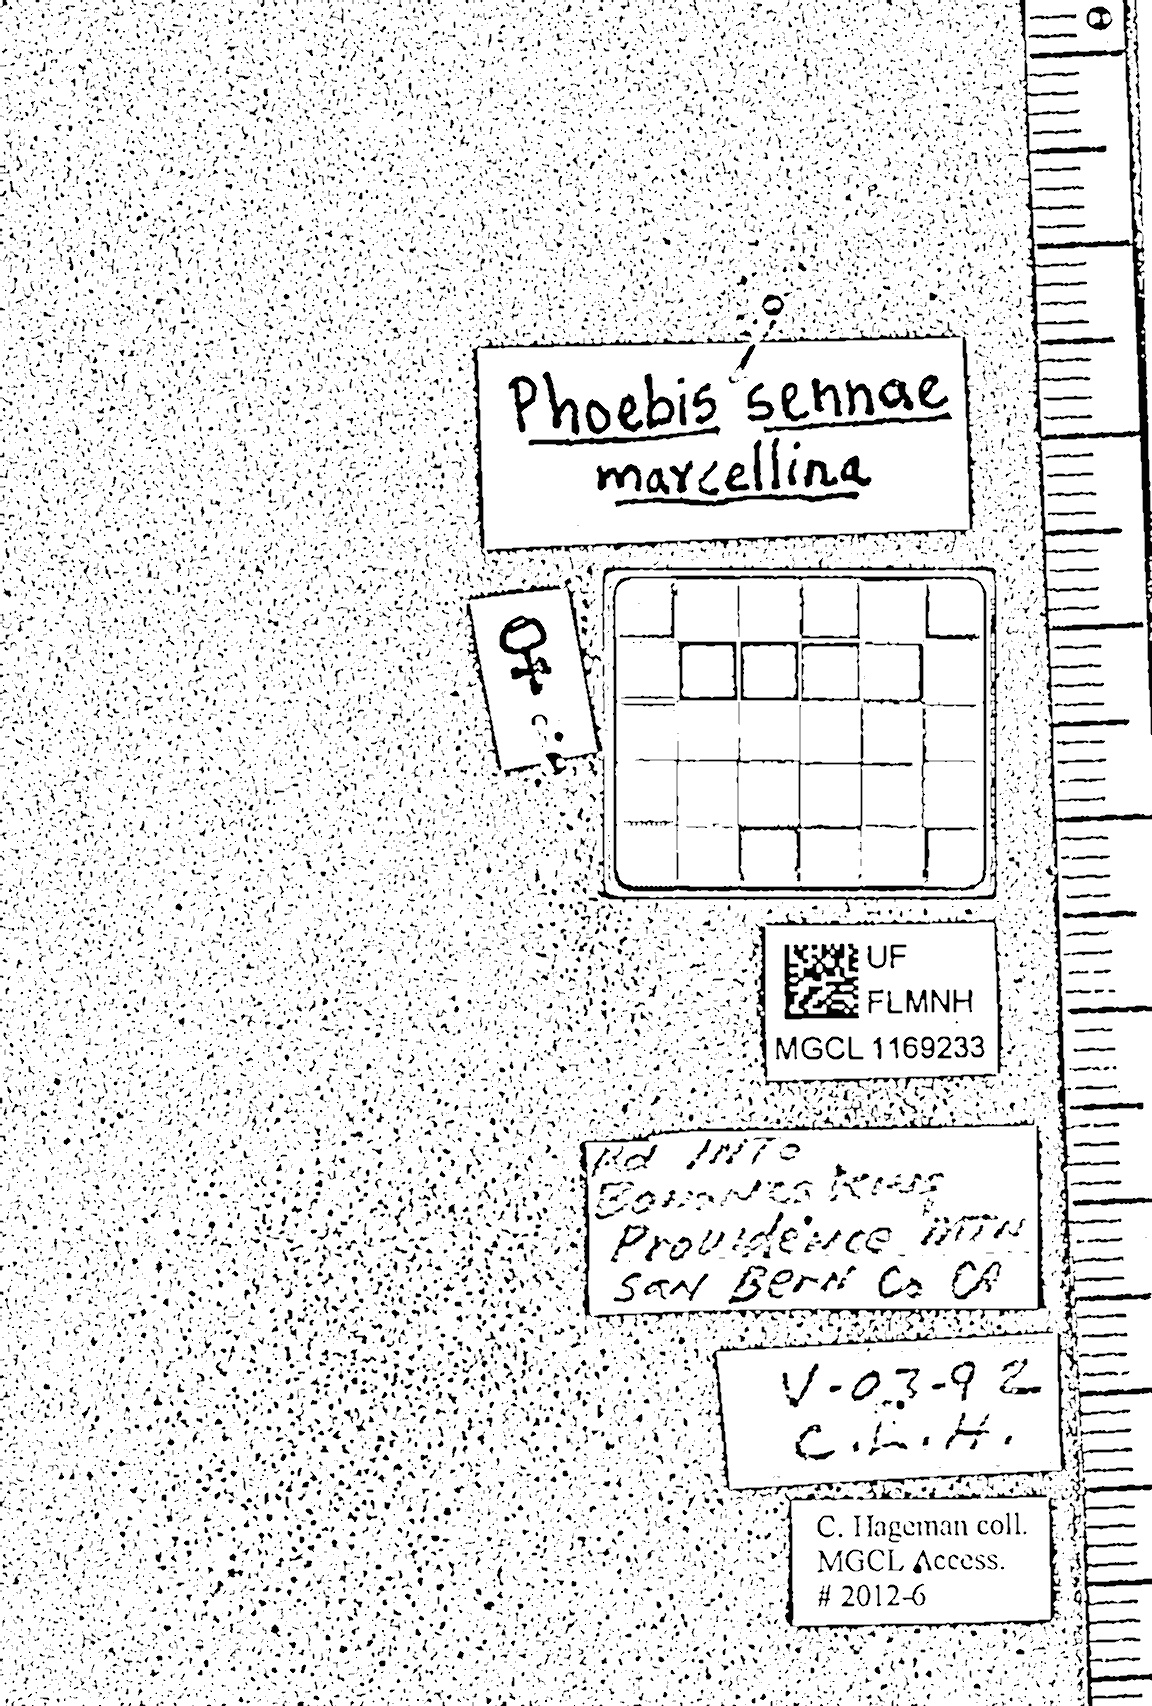 Phoebis sennae
marcellina
♀
UF
FLMNH
MGCL 1169233
Rd INTO
Providence MTN
SAN BERN Co CA
V-03-92
C.L.H.
C. Hageman coll.
MGCL Access.
# 2012-6